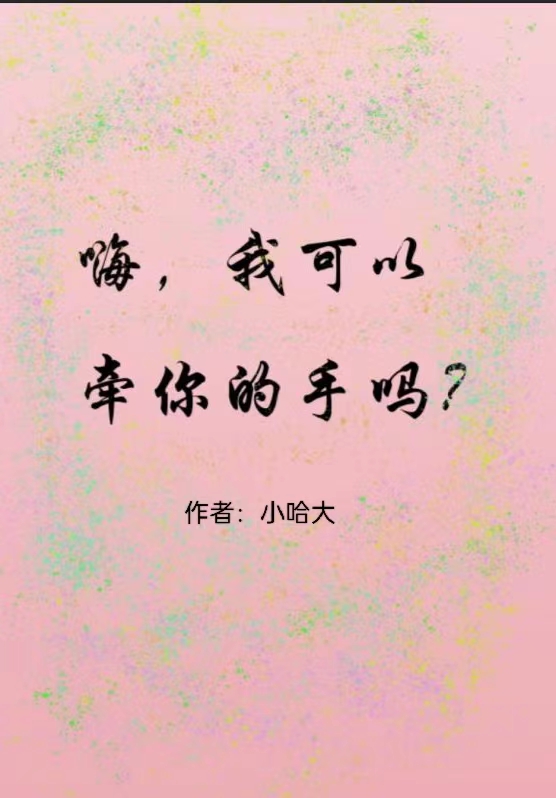 嗨，我可以
牵你的手吗？
作者：小哈大